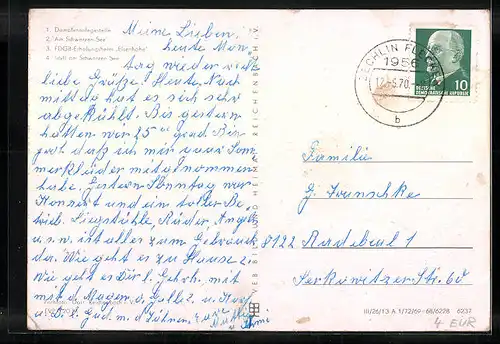 1. Dampferanlegestelle
2. Am Schwarzen See
3. FDGB-Erholungsheim „Elsenhöhe"
4. Idyll am Schwarzen See
Meine Lieben!
heute Mon-
tag wieder viele
liebe Grüße. Heute Nach
mittag hat es sich sehr
abgekühlt. Bis gestern
hatten wir 25 grad.
gort daß ich mir paar Som
merkleider mitgenommen
habe. Gestern Sonntag war
Konzert und ein toller Be
trieb. Liegstühle, Räder, Angeln
u.s.w. ist alles zum Gebrauch
da. Wie geht es zu Hause?
Wie geht es Dir l. Gerh. mit
mit d. Magen u. Galle? u. Kay
u. D. l. Gud. m. d. Zähnen. Eure
Mutti
u. Omi
VEB BILD UND HEIMAT REICHENBACH i. V.
ZECHLIN FLECKEN
1956
-6.70
b
DEUTSCHE
DEMOKRATISCHE REPUBLIK
10
Familie
G. Iwanschke
8122 Radebeul 1
Serkowitzer-Str. 60
III/26/13 A 1/72/69 68/6228 6237
4 EUR